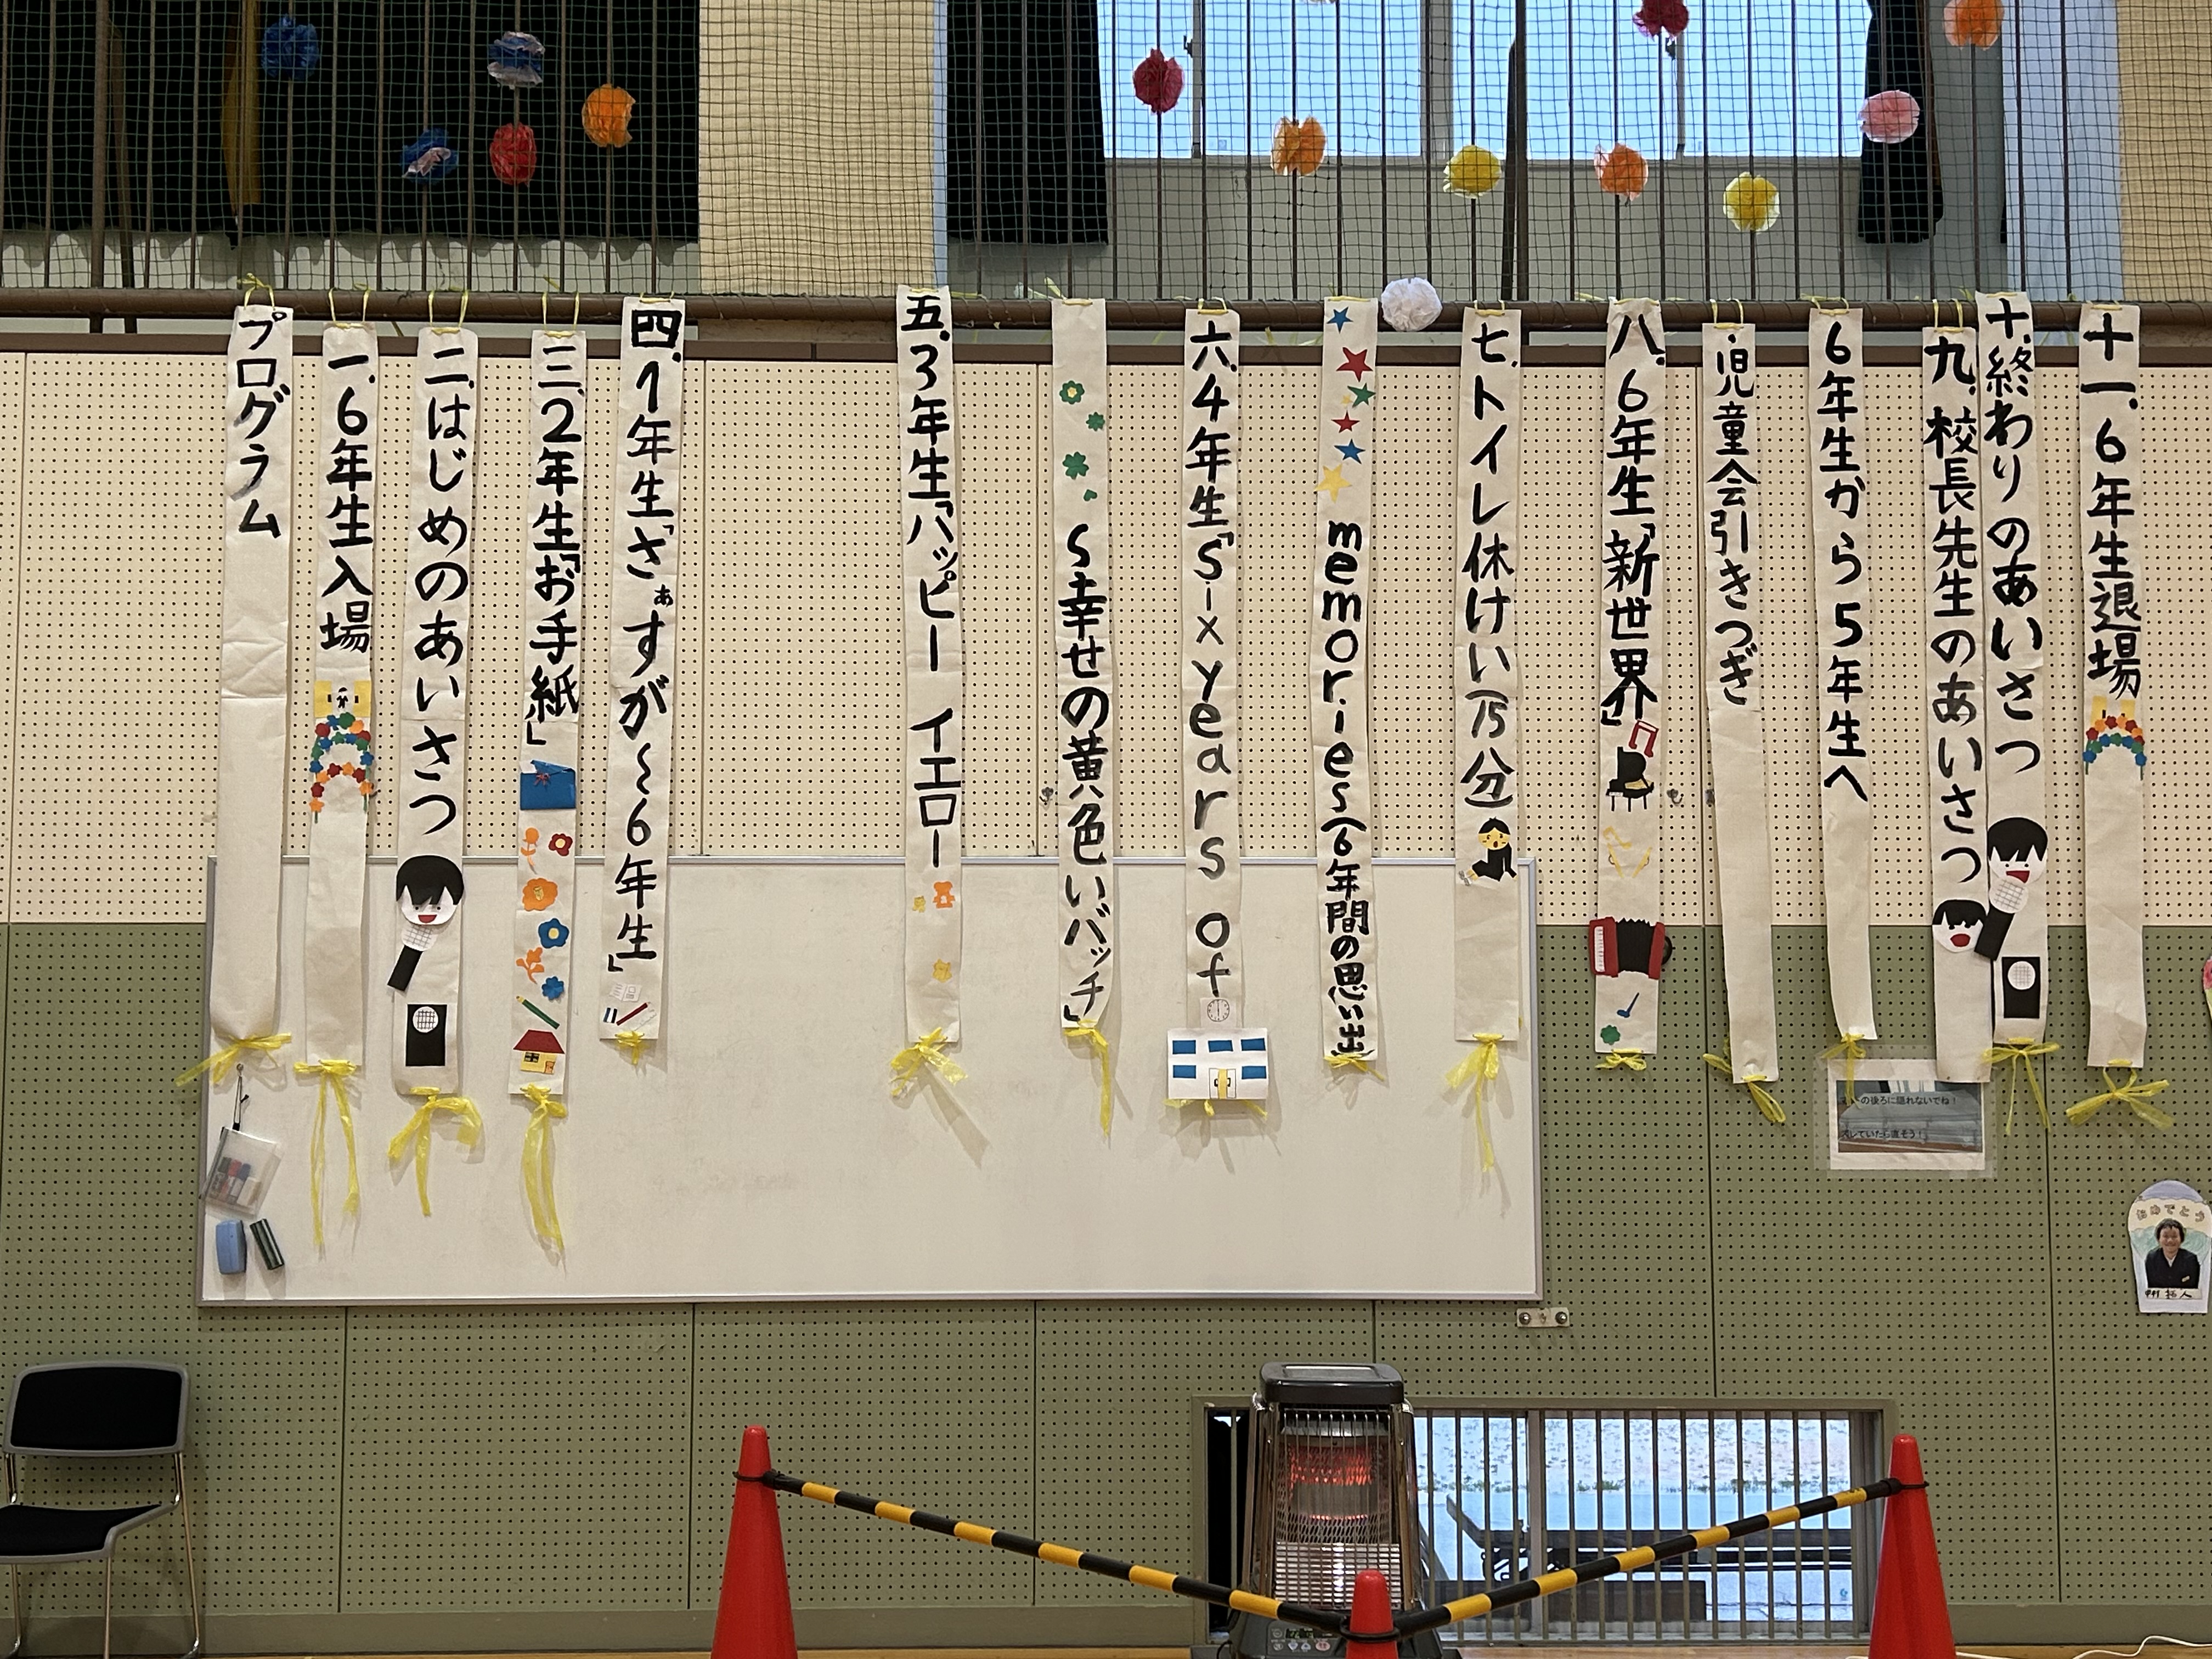 プログラム
一.6年生入場
二.はじめのあいさつ
三.2年生「お手紙」
四.1年生「さぁすが～6年生」
五.3年生「ハッピー イエロー
～幸せの黄色いバッチ」
六.4年生「Six years of
memories(6年間の思い出
七.トイレ休けい(15分)
八.6年生「新世界」
・児童会引きつぎ
6年生から5年生へ
九.校長先生のあいさつ
十.終わりのあいさつ
十一.6年生退場
の後ろに隠れないでね!
ズレていたら直そう!
おめでとう